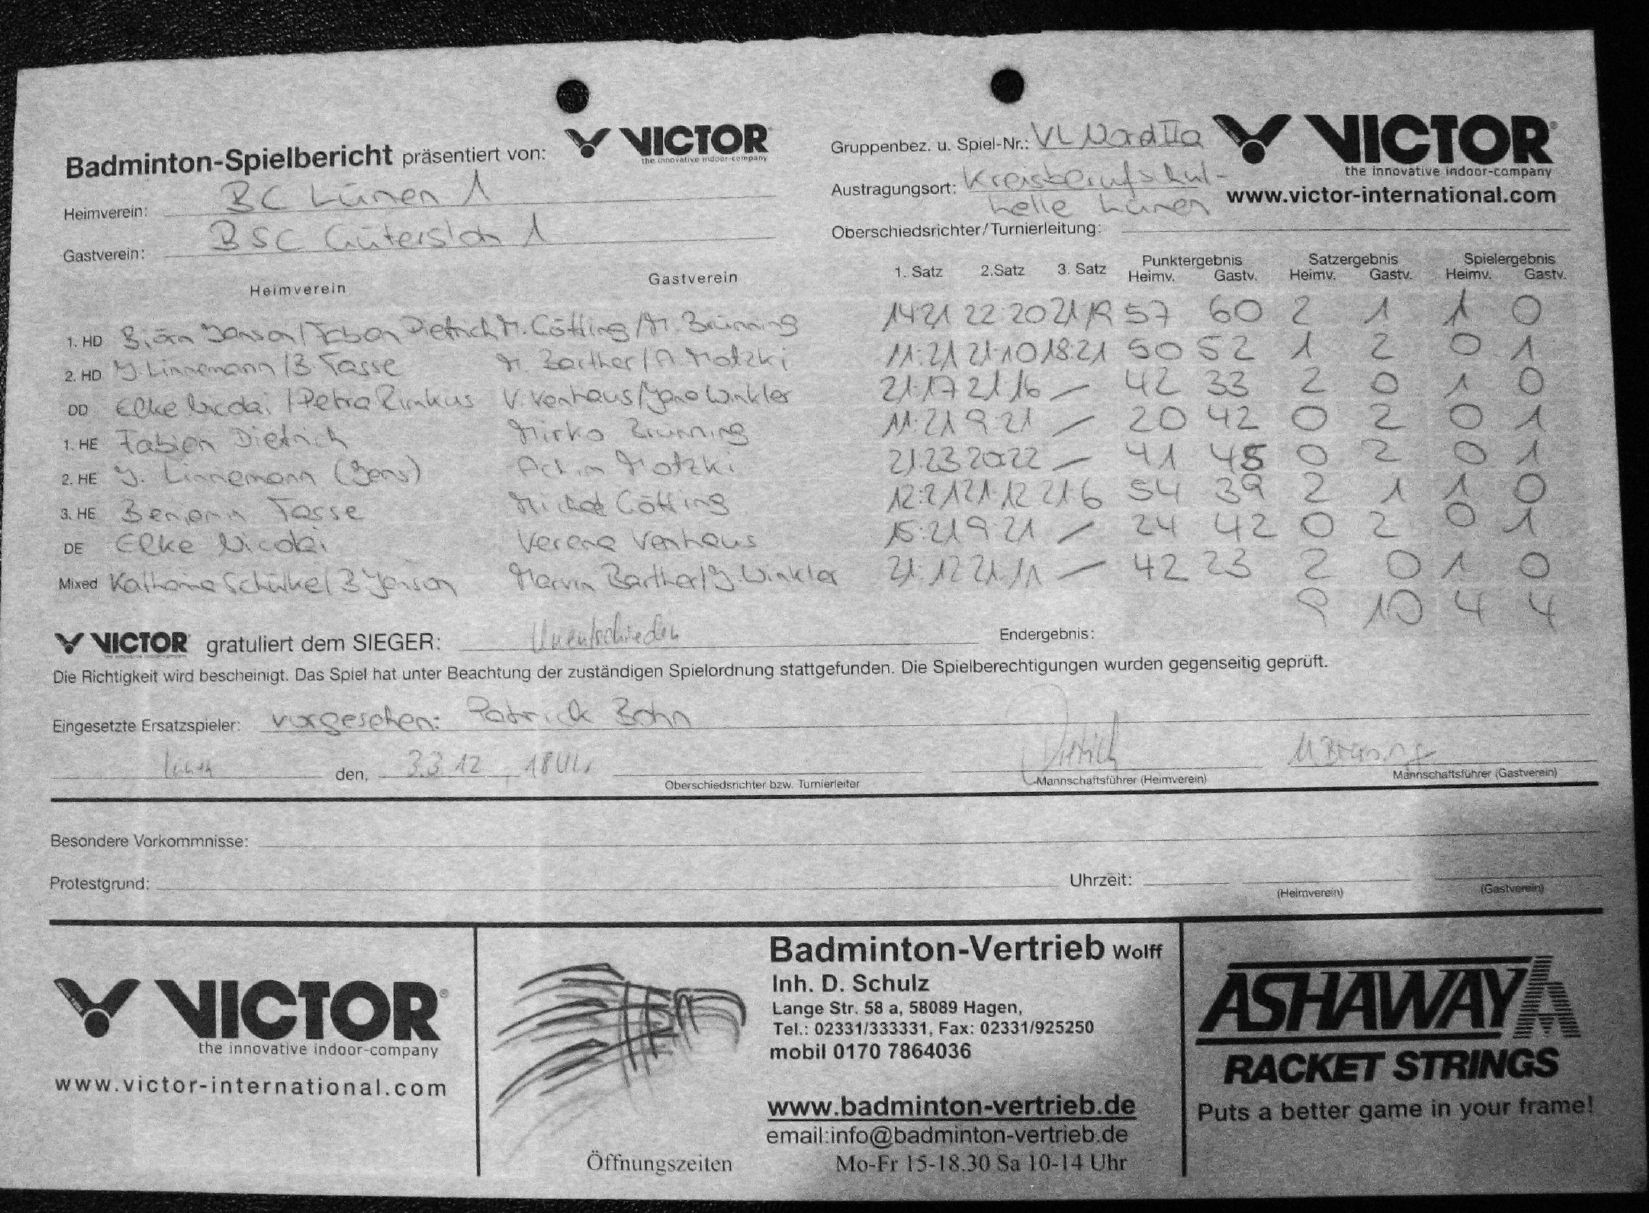 Badminton-Spielbericht präsentiert von: VICTOR
the innovative indoor-company
Gruppenbez. u. Spiel-Nr.: VL Nord IIa
VICTOR
the innovative indoor-company
www.victor-international.com
Heimverein: BC Lünen 1
Austragungsort: Kreisberufschul-
helle Lünen
Gastverein: BSC Gütersloh 1
Oberschiedsrichter/Turnierleitung:
Heimverein Gastverein 1. Satz 2.Satz 3. Satz Punktergebnis Heimv. Gastv. Satzergebnis Heimv. Gastv. Spielergebnis Heimv. Gastv.
1. HD Björn Jenson/Fabian Dietrich M. Götting/M. Brünning 14:21 22:20 21:19 57 60 2 1 1 0
2. HD J. Linnemann/B. Tasse M. Barther/A. Motzki 11:21 21:10 18:21 50 52 1 2 0 1
DD Elke Nicolai/Petra Rinkus V. Venhaus/Jana Winkler 21:17 21:16 – 42 33 2 0 1 0
1. HE Fabian Dietrich Mirko Brünning 11:21 9:21 – 20 42 0 2 0 1
2. HE J. Linnemann (Jens) Motzki 21:23 20:22 – 41 45 0 2 0 1
3. HE Benjamin Tasse Michael Götting 12:21 21:12 21:6 54 39 2 1 1 0
DE Elke Nicolai Verena Venhaus 15:21 9:21 – 24 42 0 2 0 1
Mixed Katharina Schülke/B Jenson Marvin Barther/J. Winkler 21:12 21:11 – 42 23 2 0 1 0
9 10 4 4
VICTOR gratuliert dem SIEGER: Unentschieden Endergebnis:
Die Richtigkeit wird bescheinigt. Das Spiel hat unter Beachtung der zuständigen Spielordnung stattgefunden. Die Spielberechtigungen wurden gegenseitig geprüft.
Eingesetzte Ersatzspieler: vorgesehen: Patrick Bohn
den, 3.3.12, 18 Uhr Dietrich M Brünning
Oberschiedsrichter bzw. Turnierleiter Mannschaftsführer (Heimverein) Mannschaftsführer (Gastverein)
Besondere Vorkommnisse:
Protestgrund: Uhrzeit: (Heimverein) (Gastverein)
VICTOR
the innovative indoor-company
www.victor-international.com
Öffnungszeiten
Badminton-Vertrieb Wolff
Inh. D. Schulz
Lange Str. 58 a, 58089 Hagen,
Tel.: 02331/333331, Fax: 02331/925250
mobil 0170 7864036
www.badminton-vertrieb.de
email:info@badminton-vertrieb.de
Mo-Fr 15-18.30 Sa 10-14 Uhr
ASHAWAY
RACKET STRINGS
Puts a better game in your frame!